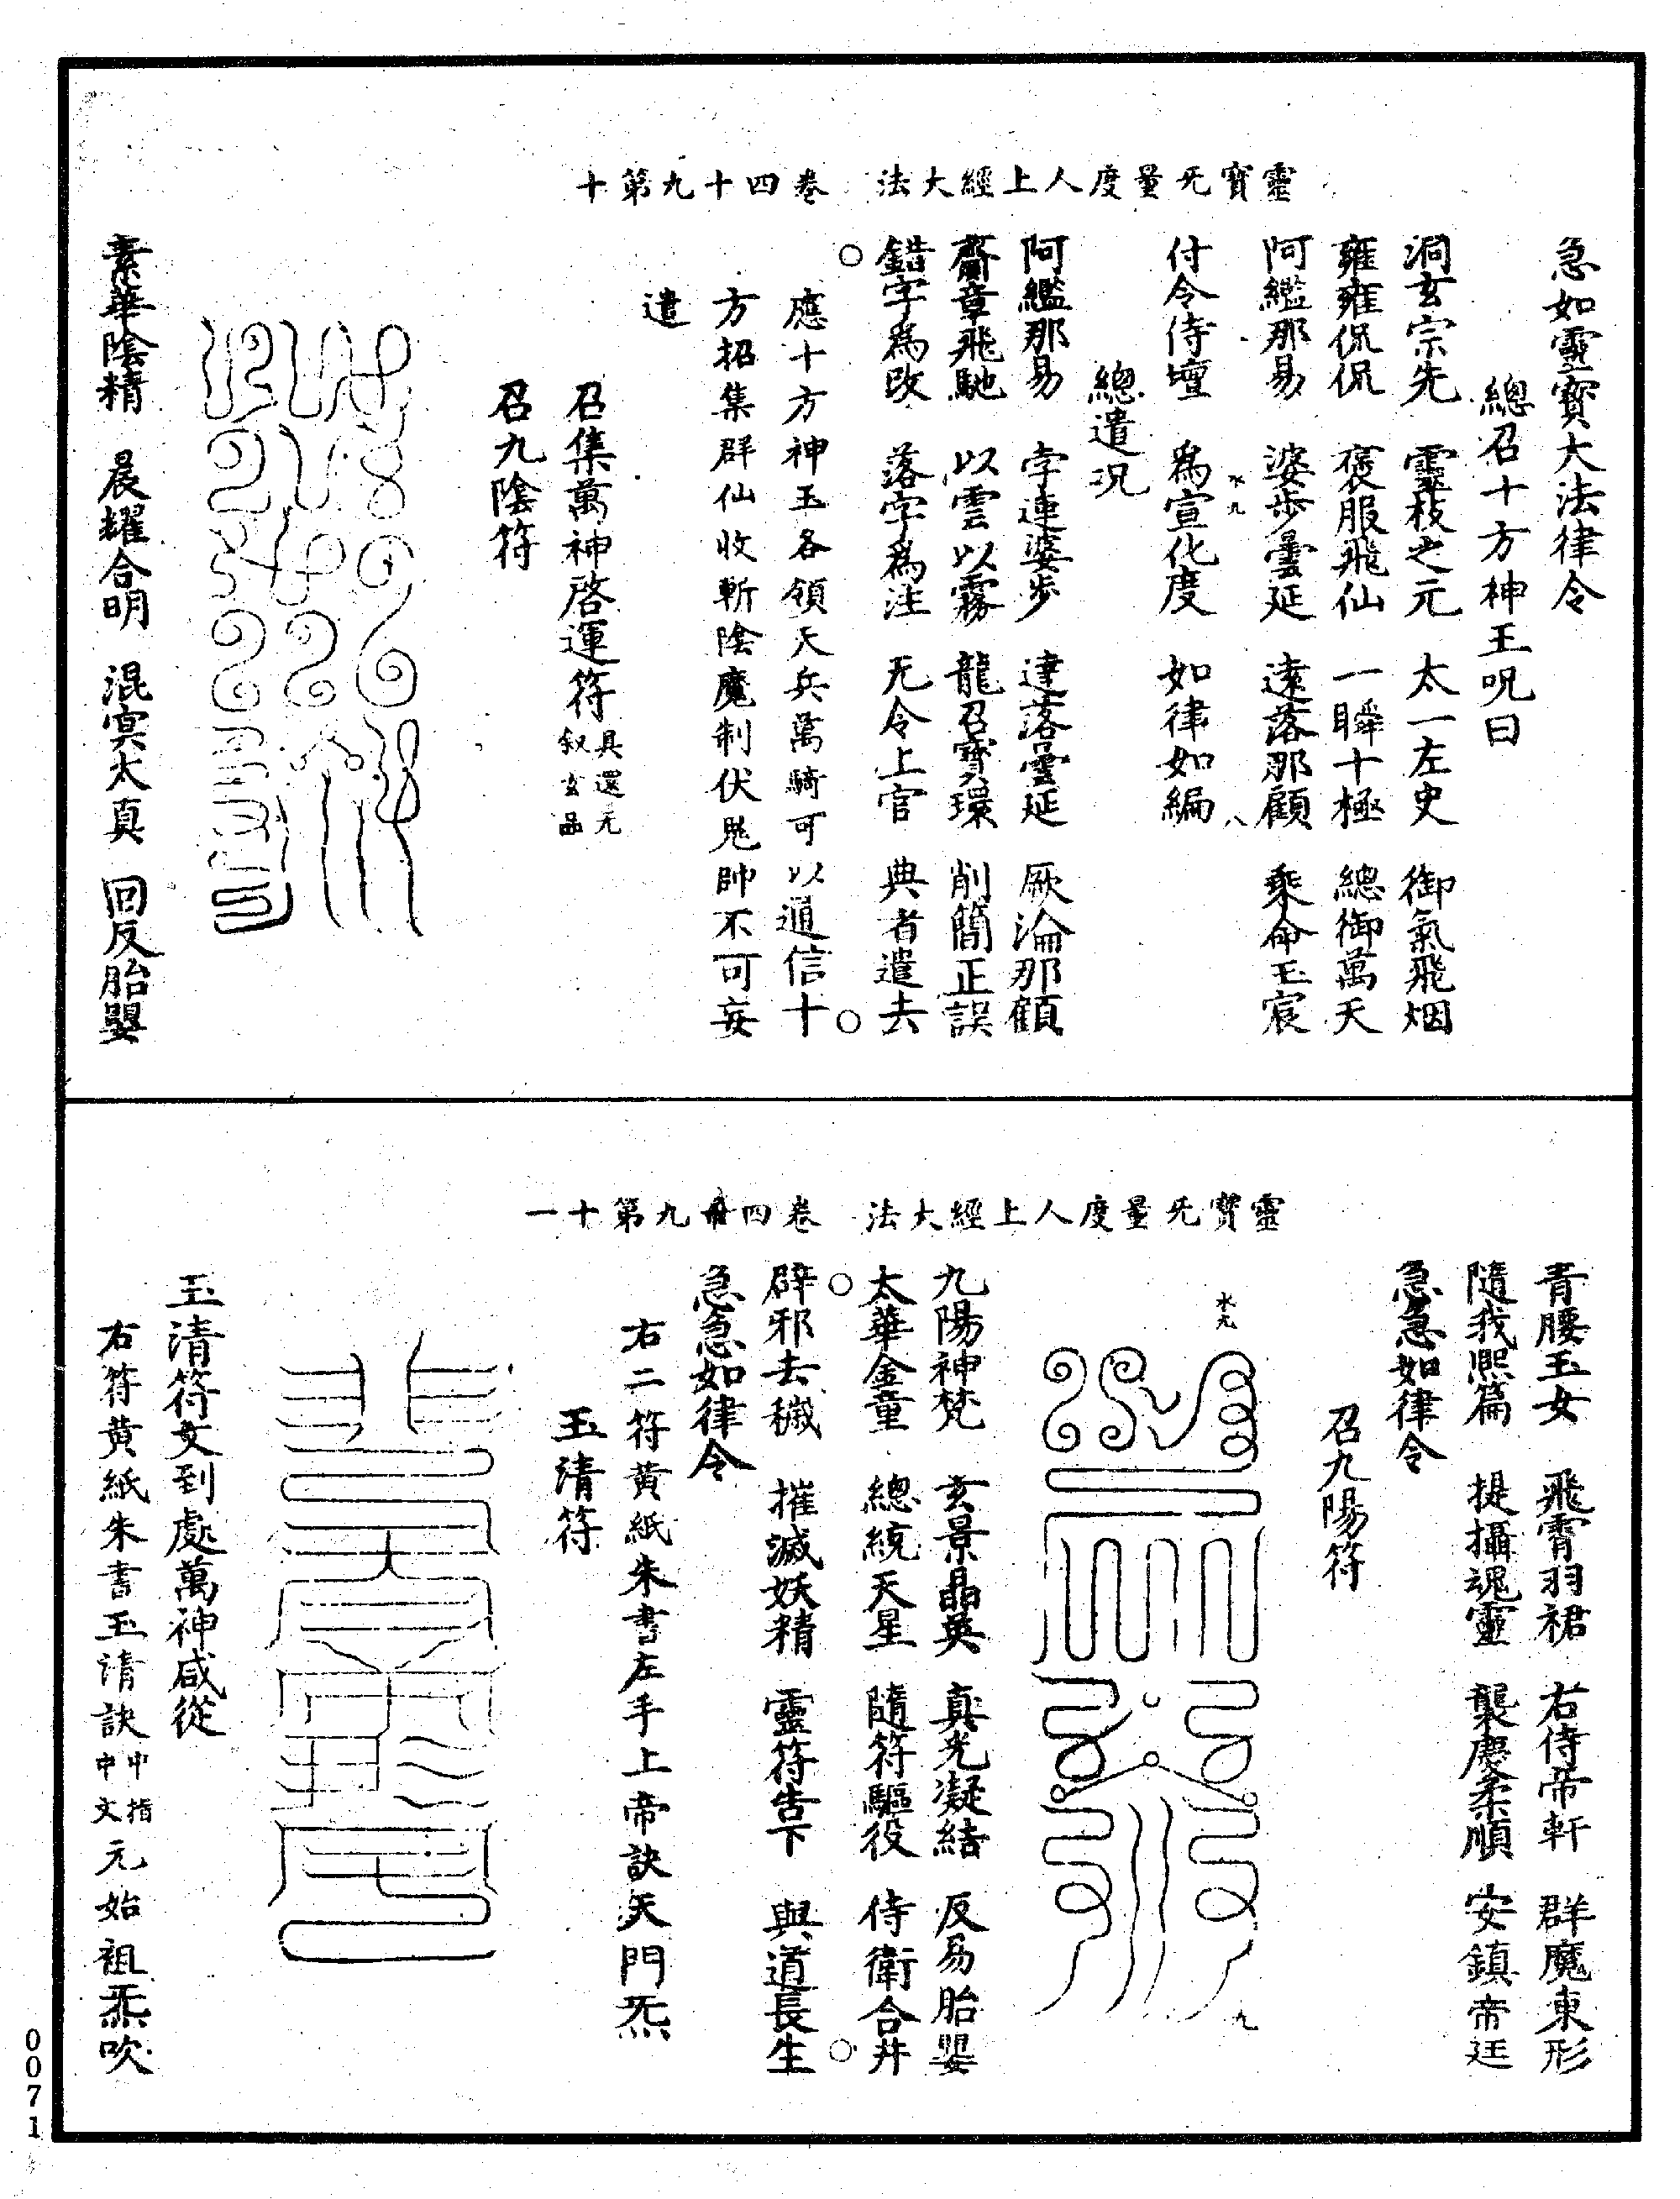 靈寶无量度人上經大法　卷四十九第十
急如靈寶大法律令
總召十方神王呪曰
洞玄宗先　靈枝之元　太一左史　御氣飛烟
雍雍侃侃　褒服飛仙　一瞬十極　總御萬天
阿纜那易　婆步曇延　遠落那顧　乘命玉宸
水九　八
付令侍壇　為宣化度　如律如編
總遣呪
阿纜那易　孛連婆步　達落曇延　厥淪那顧
齋章飛馳　以雲以霧　龍召寶環　削簡正誤
錯字為改　落字為注　无令上官　典者遣去
應十方神王各領天兵萬騎可以通信十
方招集群仙收斬陰魔制伏鬼帥不可妄
遣
召集萬神啓運符具還元叙玄品
召九陰符
素華陰精　晨耀合明　混冥太真　回反胎嬰
靈寶无量度人上經大法　卷四十九第十一
青腰玉女　飛霄羽裙　右侍帝軒　群魔東形
隨我熙篇　提攝魂靈　襲慶柔順　安鎮帝廷
急急如律令
召九陽符
水九　九
九陽神梵　玄景晶英　真光凝結　反易胎嬰
太華金童　總統天星　隨符驅役　侍衛合并
辟邪去穢　摧滅妖精　靈符告下　與道長生
急急如律令
右二符黃紙朱書左手上帝訣天門炁
玉清符
玉清符文到處萬神咸從
右符黃紙朱書玉清訣中指中文元始祖炁吹
0071